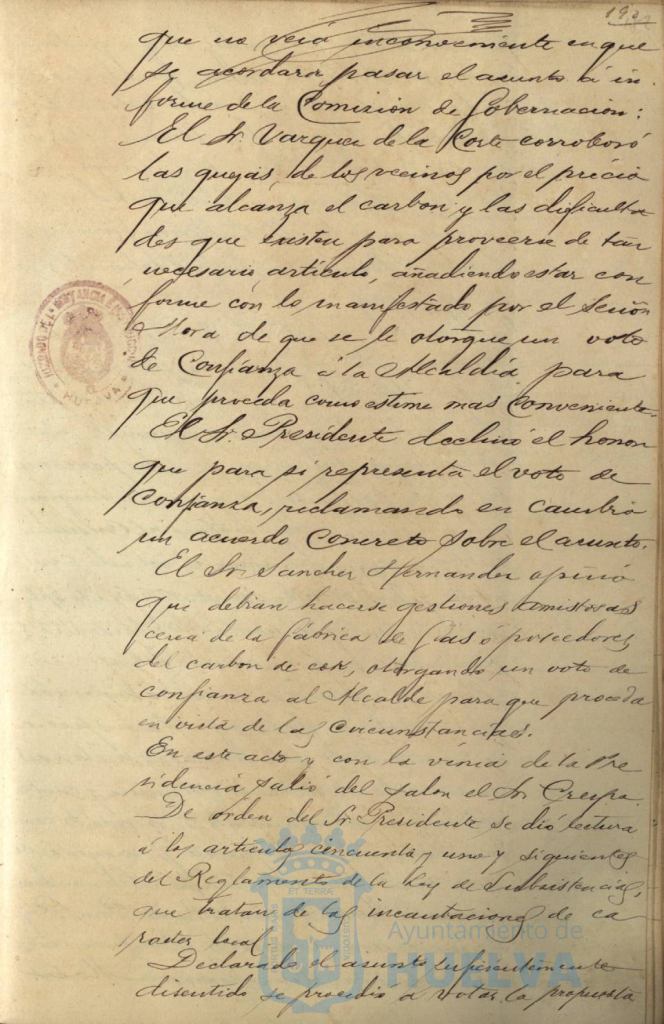 192
que no veia inconveniente en que
se acordara pasar el asunto á in
forme de la Comision de Gobernacion:
El Sr. Vazquez de la Corte corroboró
las quejas de los vecinos por el precio
que alcanza el carbon y las dificulta
des que existen para proveerse de tan
necesario articulo, añadiendo estar con
forme con lo manifestado por el Señor
Mora de que se le otorgue un voto
de Confianza á la Alcaldia para
que proceda como estime mas conveniente.
El Sr. Presidente declinó el honor
que para si representa el voto de
confianza, reclamando en cambio
un acuerdo concreto sobre el asunto.
El Sr. Sanchez Hernandez opinó
que debian hacerse gestiones amistosas
cerca de la fábrica de Gas ó poseedores,
del carbon de cok, otorgando un voto de
confianza al Alcalde para que proceda
en vista de las circunstancias.
En este acto y con la vénia de la Pre
sidencia salió del salon el Sr. Crespo.
De orden del Sr. Presidente se dió lectura
á los articulos cincuenta y uno y siguientes
del Reglamento de la Ley de Subsistencias,
que tratan de las incautaciones de ca
racter local
Declarado el asunto suficientemente
discutido se procedió a votar la propuesta
HUELVA
Ayuntamiento de
HUELVA